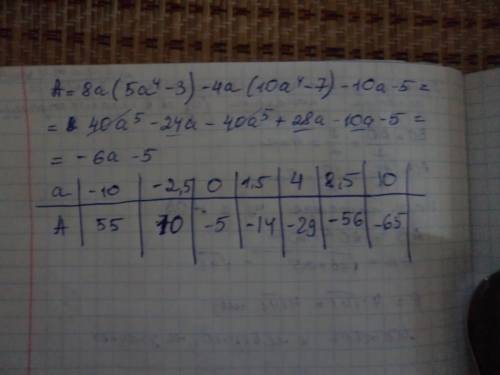 A = 8a(5a⁴-3)-4a(10a⁴-7)-10a-5=
= 40a⁵-24a-40a⁵+28a-10a-5=
= -6a-5
a | -10 | -2,5 | 0 | 1,5 | 4 | 8,5 | 10
A | 55 | 10 | -5 | -14 | -29 | -56 | -65